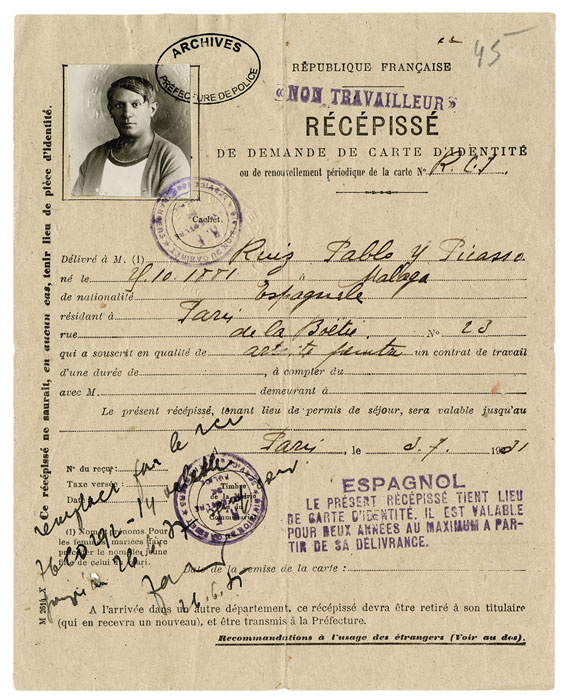 45
ARCHIVES
PRÉFECTURE DE POLICE
RÉPUBLIQUE FRANÇAISE
"NON TRAVAILLEUR"
RÉCÉPISSÉ
DE DEMANDE DE CARTE D'IDENTITÉ
ou de renouvellement périodique de la carte No R.C.I.
Cachet.
Délivré à M. (1) Ruiz Pablo y Picasso
né le 10. à Malaga
de nationalité Espagnole
résidant à Paris
rue de la Boëtie No 23
qui a souscrit en qualité de artiste peintre un contrat de travail
d'une durée de , à compter du
avec M. demeurant à
Le présent récépissé, tenant lieu de permis de séjour, sera valable jusqu'au
Paris , le 3.7. 1931
No du reçu:
Taxe versée:
Date
Timbre
remplacé par le
ESPAGNOL
LE PRÉSENT RÉCÉPISSÉ TIENT LIEU
DE CARTE D'IDENTITÉ. IL EST VALABLE
POUR DEUX ANNÉES AU MAXIMUM A PAR-
TIR DE SA DÉLIVRANCE.
(1) Nom et prénoms Pour
les femmes mariées faire
précéder le nom de
de celui du mari.
Date de la remise de la carte :
A l'arrivée dans un autre département, ce récépissé devra être retiré à son titulaire
(qui en recevra un nouveau), et être transmis à la Préfecture.
Recommandations à l'usage des étrangers (Voir au dos).
Ce récépissé ne saurait, en aucun cas, tenir lieu de pièce d'identité.